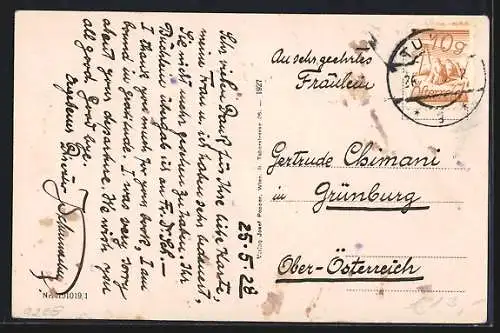 Ich vielen Dank für Ihre liebe Karte,
meine Frau u. ich haben sehr bedauert,
Sie nicht mehr gesehen zu haben. Ihr
Büchlein übergab ich an Fr. D. Sch.-
I thank you much for your book, I am
bound in gratitude. I was very sorry
about your departure. We wish you
all good. Good bye.
Ergebenst
25.5.28
Verlag Josef Popper, Wien, II. Taborstrasse 26. — 1927
An sehr geehrtes
Fräulein
Gertrude Chimani
in Grünburg
Ober-Österreich
TU
10g
Österreich